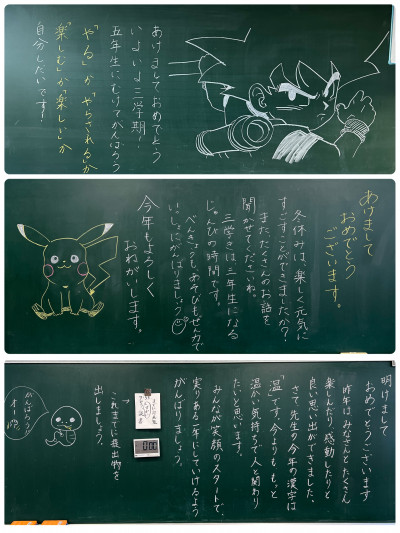 あけましておめでとう
いよいよ三学期！
五年生にむけてがんばろう
「やる」か「やらされる」か
「楽しむ」か「楽しい」か
自分しだいです！
あけまして
おめでとう
ございます。
冬休みは、楽しく元気に
すごすことができましたか？
また、たくさんのお話を
聞かせてくださいね。
三学きは三年生になる
じゅんびの時間です。
べんきょうもあそびもぜん力で
いっしょにがんばりましょう
今年もよろしく
おねがいします。
明けまして
おめでとうございます
昨年はみなさんとたくさん
楽しんだり、感動したりと
良い思い出ができました。
さて、先生の今年の漢字は
「温」です。今よりももっと
温かい気持ちで人と関わり
たいと思います。
みんなが笑顔のスタートで、
実りある一年にしていけるよう
がんばりましょう。
これまでに提出物を
出しましょう。
がんばろう
オー